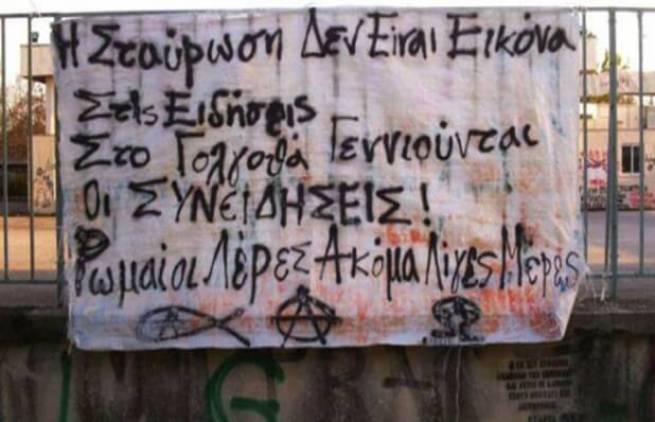 Η Σταύρωση Δεν Είναι Εικόνα
Στις Ειδήσεις
Στο Γολγοθά Γεννιούνται
Οι ΣΥΝΕΙΔΗΣΕΙΣ!
Ρωμαίοι Λέρες Ακόμα Λίγες Μέρες